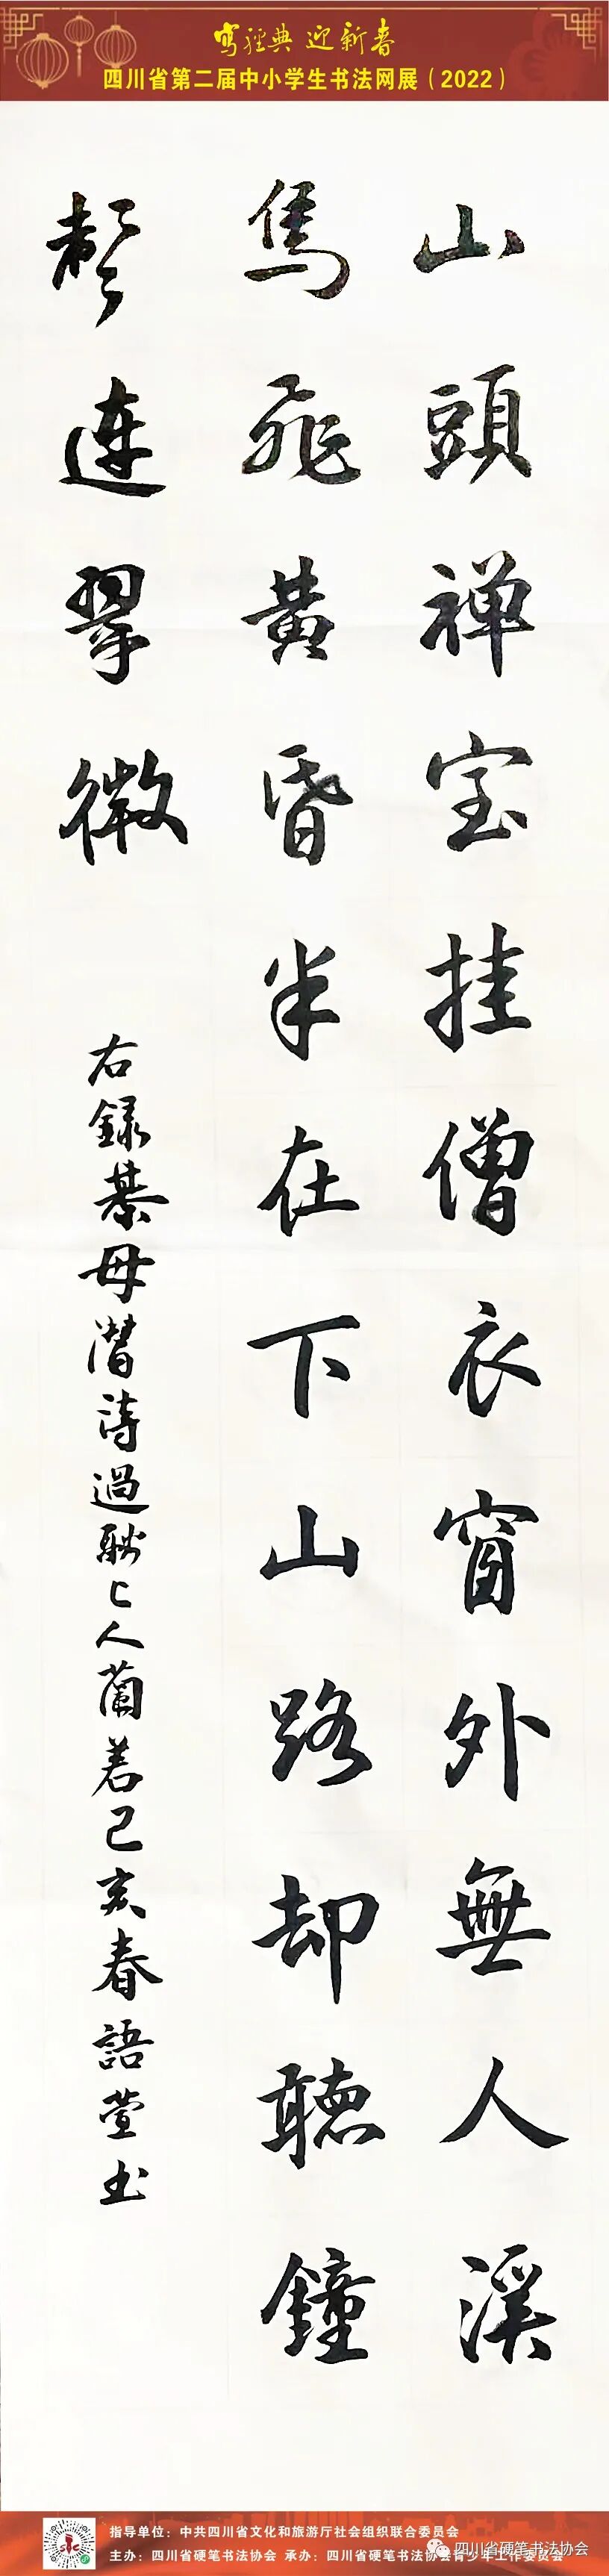 写經典 迎新春
四川省第二届中小学生书法网展（2022）
山頭禅室挂僧衣窗外無人溪
鳥飛黄昏半在下山路却聽鐘
聲連翠微
右録綦毋潛詩過融上人蘭若己亥春語萱书
指导单位：中共四川省文化和旅游厅社会组织联合委员会
主办：四川省硬笔书法协会 承办：四川省硬笔书法协会青少年工作委员会
四川省硬笔书法协会